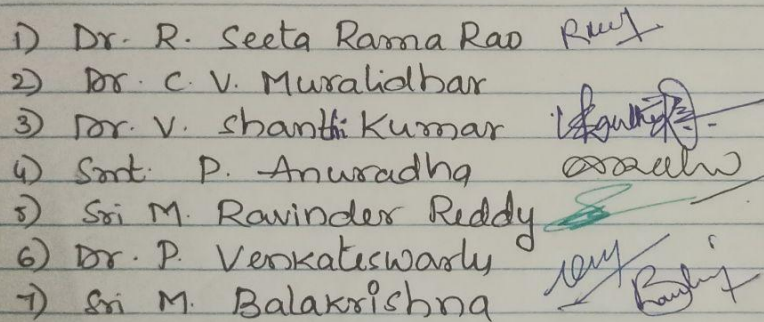 1) Dr. R. Seeta Rama Rao
2) Dr. C. V. Muralidhar
3) Dr. V. Shanthi Kumar
4) Smt. P. Anuradha
5) Sri M. Ravinder Reddy
6) Dr. P. Venkateswarlu
7) Sri M. Balakrishna